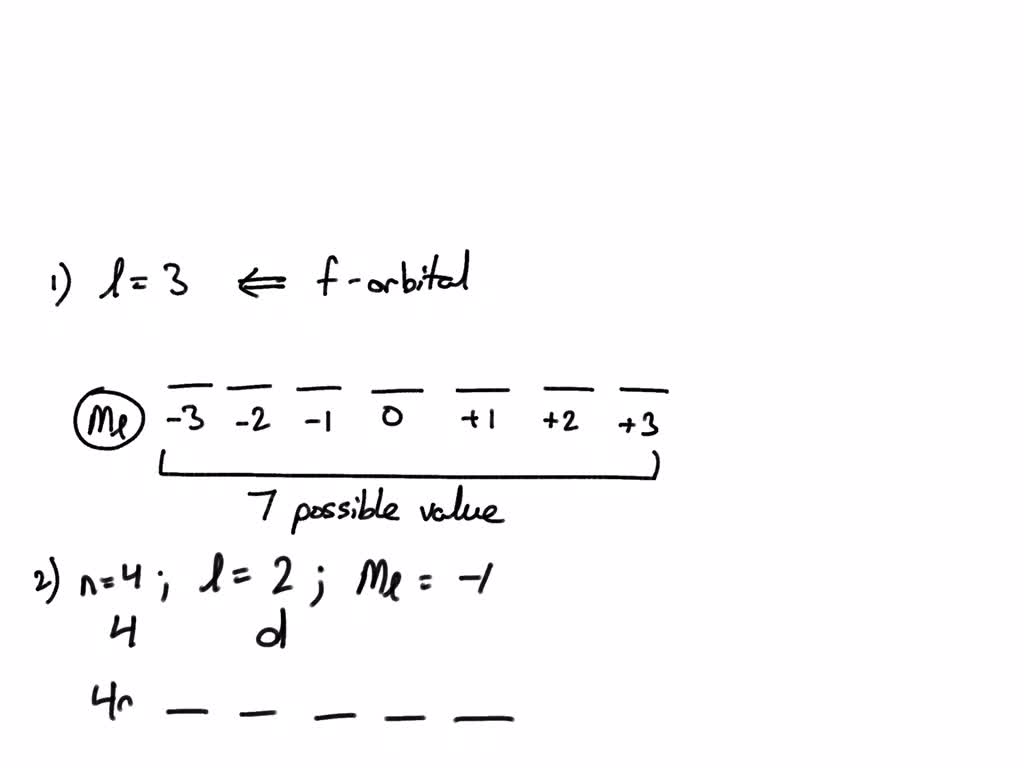 1) l = 3 ⇐ f-orbital
Ml -3 -2 -1 0 +1 +2 +3
7 possible value
2) n=4 ; l = 2 ; Ml = -1
4 d
4